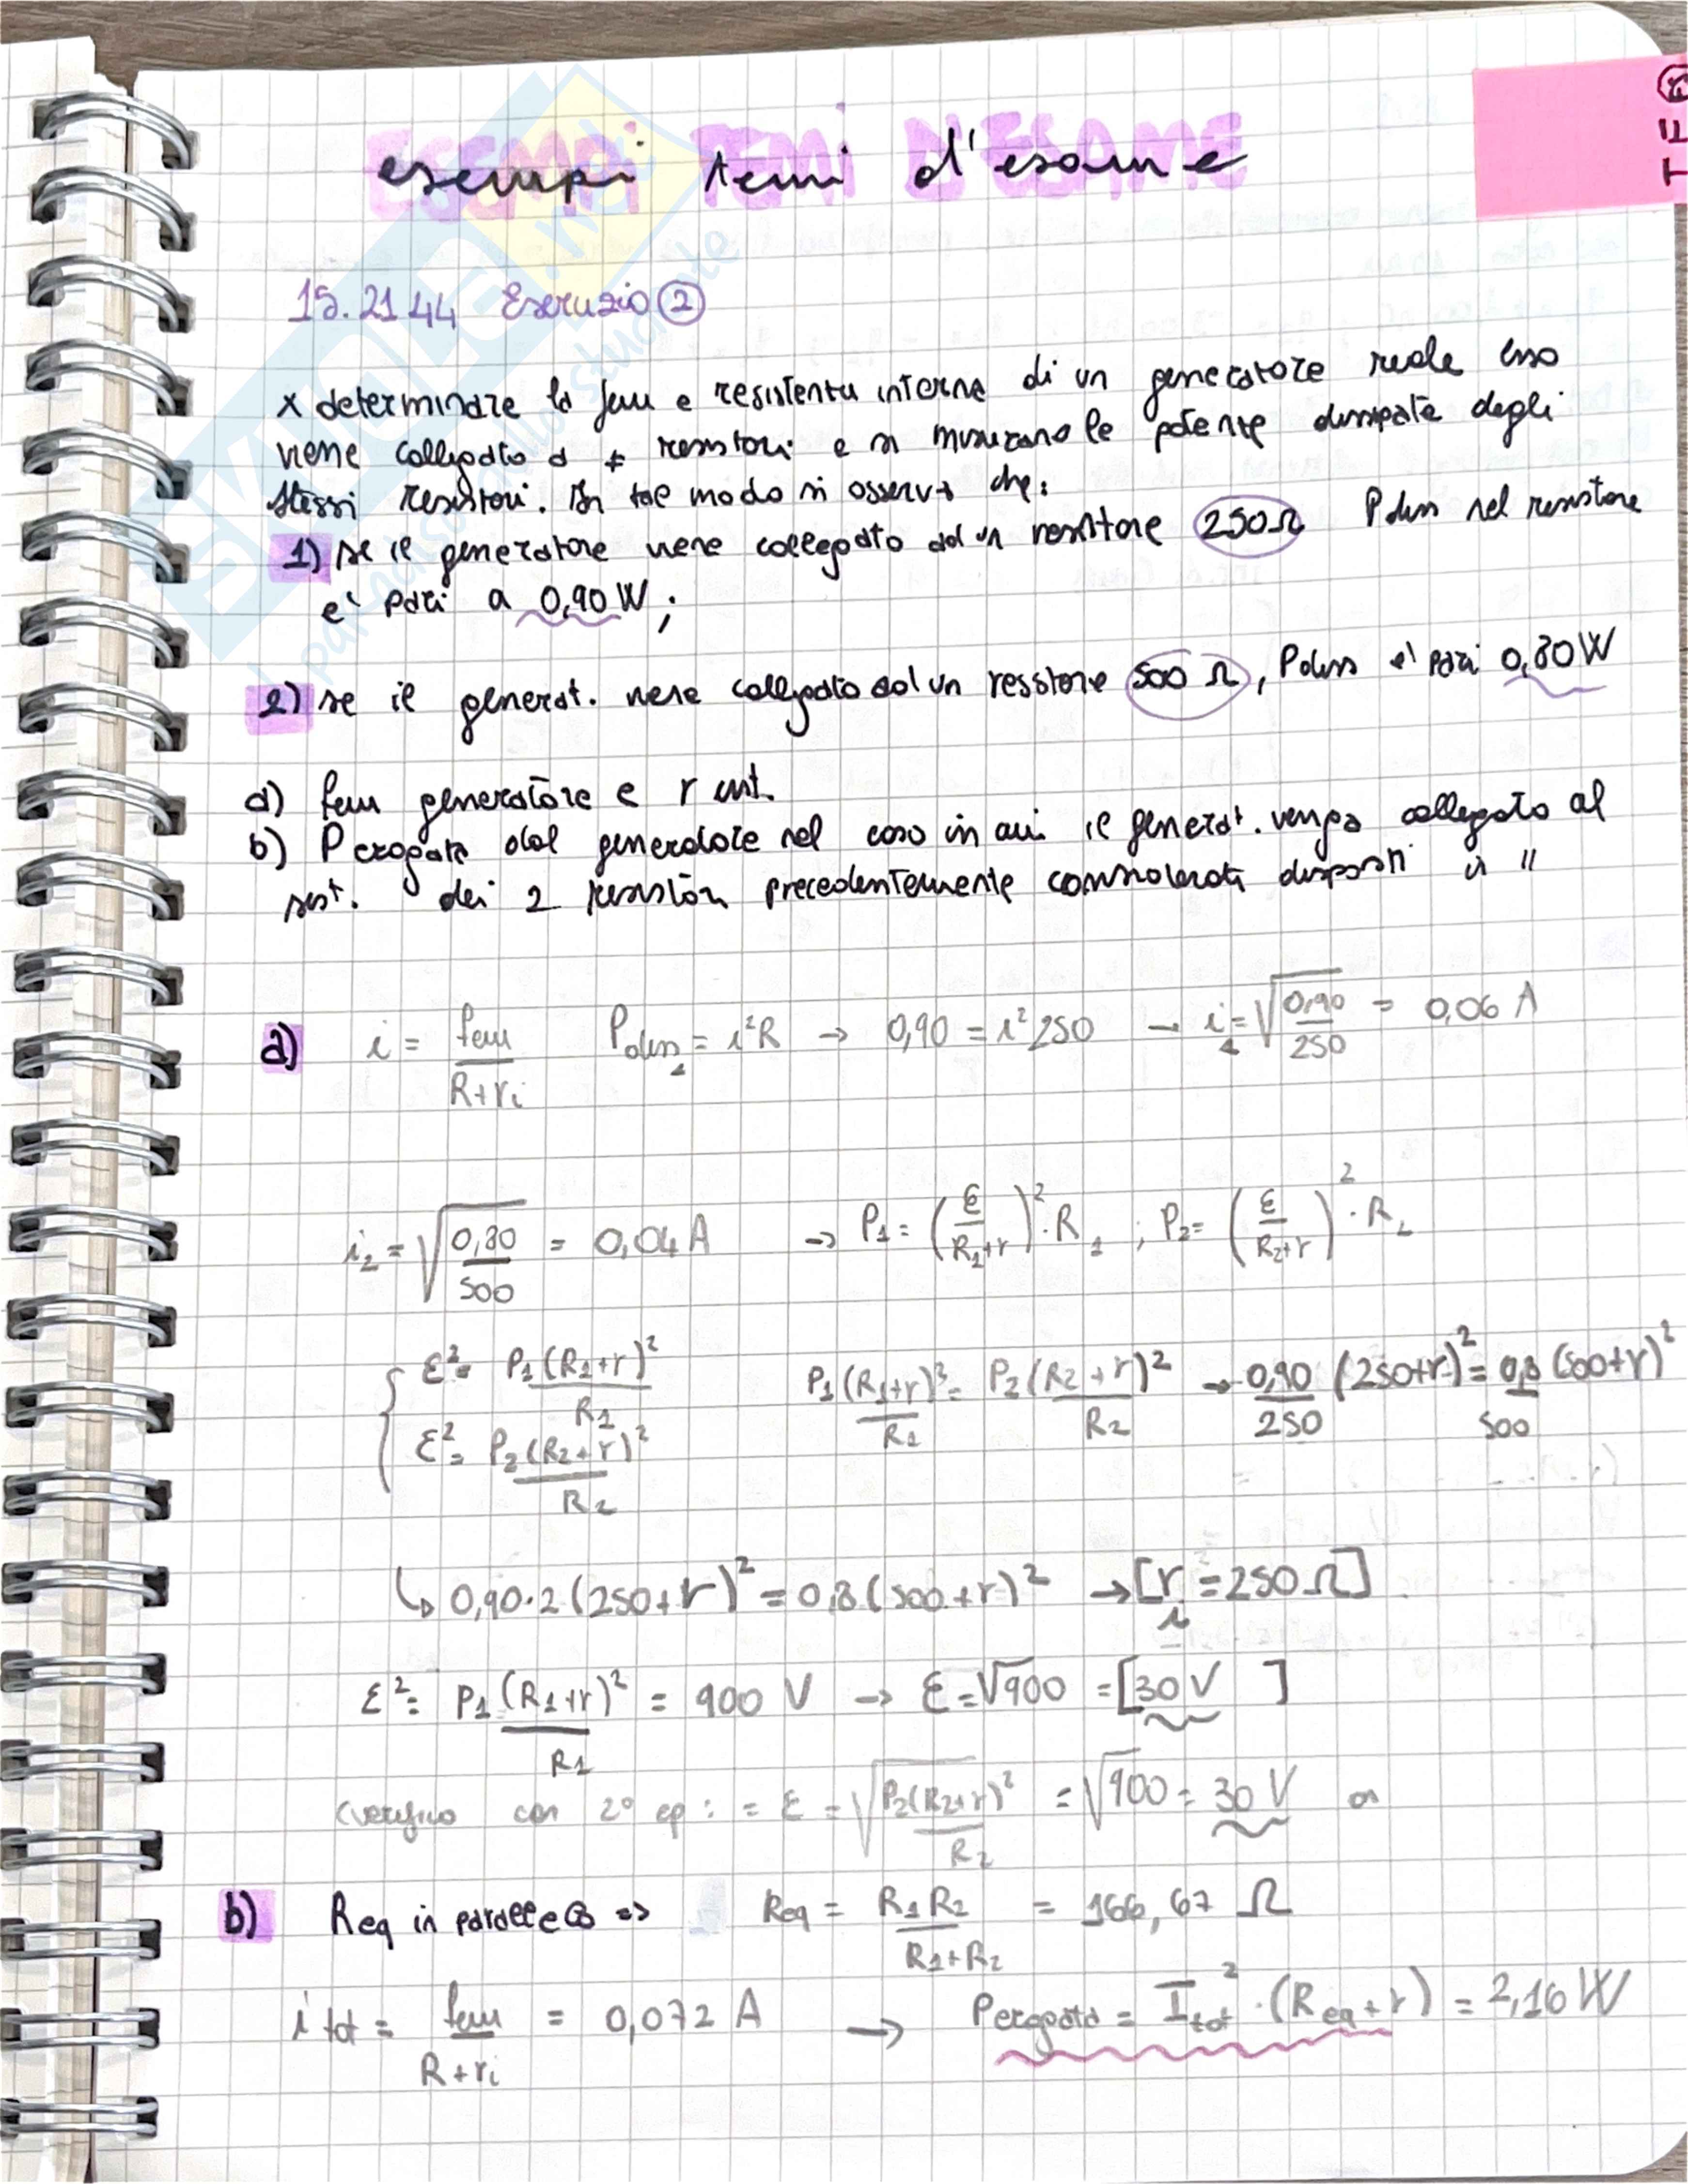 ESEMPI TEMI D'ESAME
esempi temi d'esame
TEF
15.21.44 Esercizio ②
x determinare la fem e resistenza interna di un generatore reale esso
viene collegato a ≠ resistori e si misurano le potenze dissipate degli
stessi resistori. In tal modo si osserva che:
1) se il generatore viene collegato ad un resistore 250Ω Pdiss nel resistore
e' pari a 0,90 W;
2) se il generat. viene collegato ad un resistore 500 Ω, Pdiss e' pari 0,80W
a) fem generatore e r int.
b) P erogata dal generatore nel caso in cui il generat. venga collegato al
sist. dei 2 resistori precedentemente considerati disposti in //
a) i = fem/(R+ri) Pdiss1 = i²R → 0,90 = i² 250 → i1 = √(0,90/250) = 0,06 A
i2 = √(0,80/500) = 0,04 A → P1 = (ε/(R1+r))² · R1 ; P2 = (ε/(R2+r))² · R2
ε² = P1(R1+r)²/R1 P1(R1+r)²/R1 = P2(R2+r)²/R2 → 0,90/250 (250+r)² = 0,8/500 (500+r)²
ε² = P2(R2+r)²/R2
↳ 0,90·2(250+r)² = 0,8(500+r)² → [ri = 250Ω]
ε² = P1(R1+r)²/R1 = 900 V → ε = √900 = [30 V]
(verifico con 2° eq : = ε = √(P2(R2+r)²/R2) = √900 = 30 V
b) Req in parallelo => Req = R1R2/(R1+R2) = 166,67 Ω
i tot = fem/(R+ri) = 0,072 A → Perogata = Itot² · (Req+r) = 2,16 W
SKUOLA.net
il paradiso dello studente